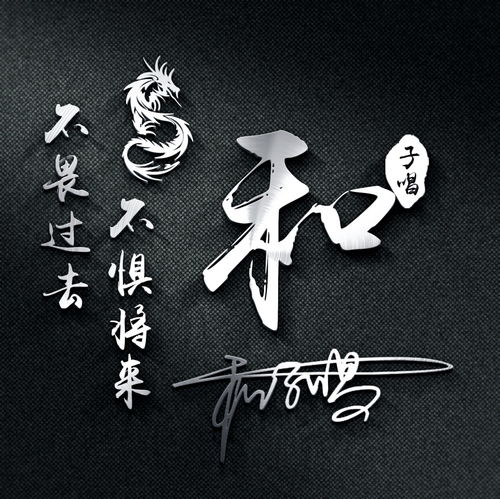 不畏过去
不惧将来
和
子唱
和子唱